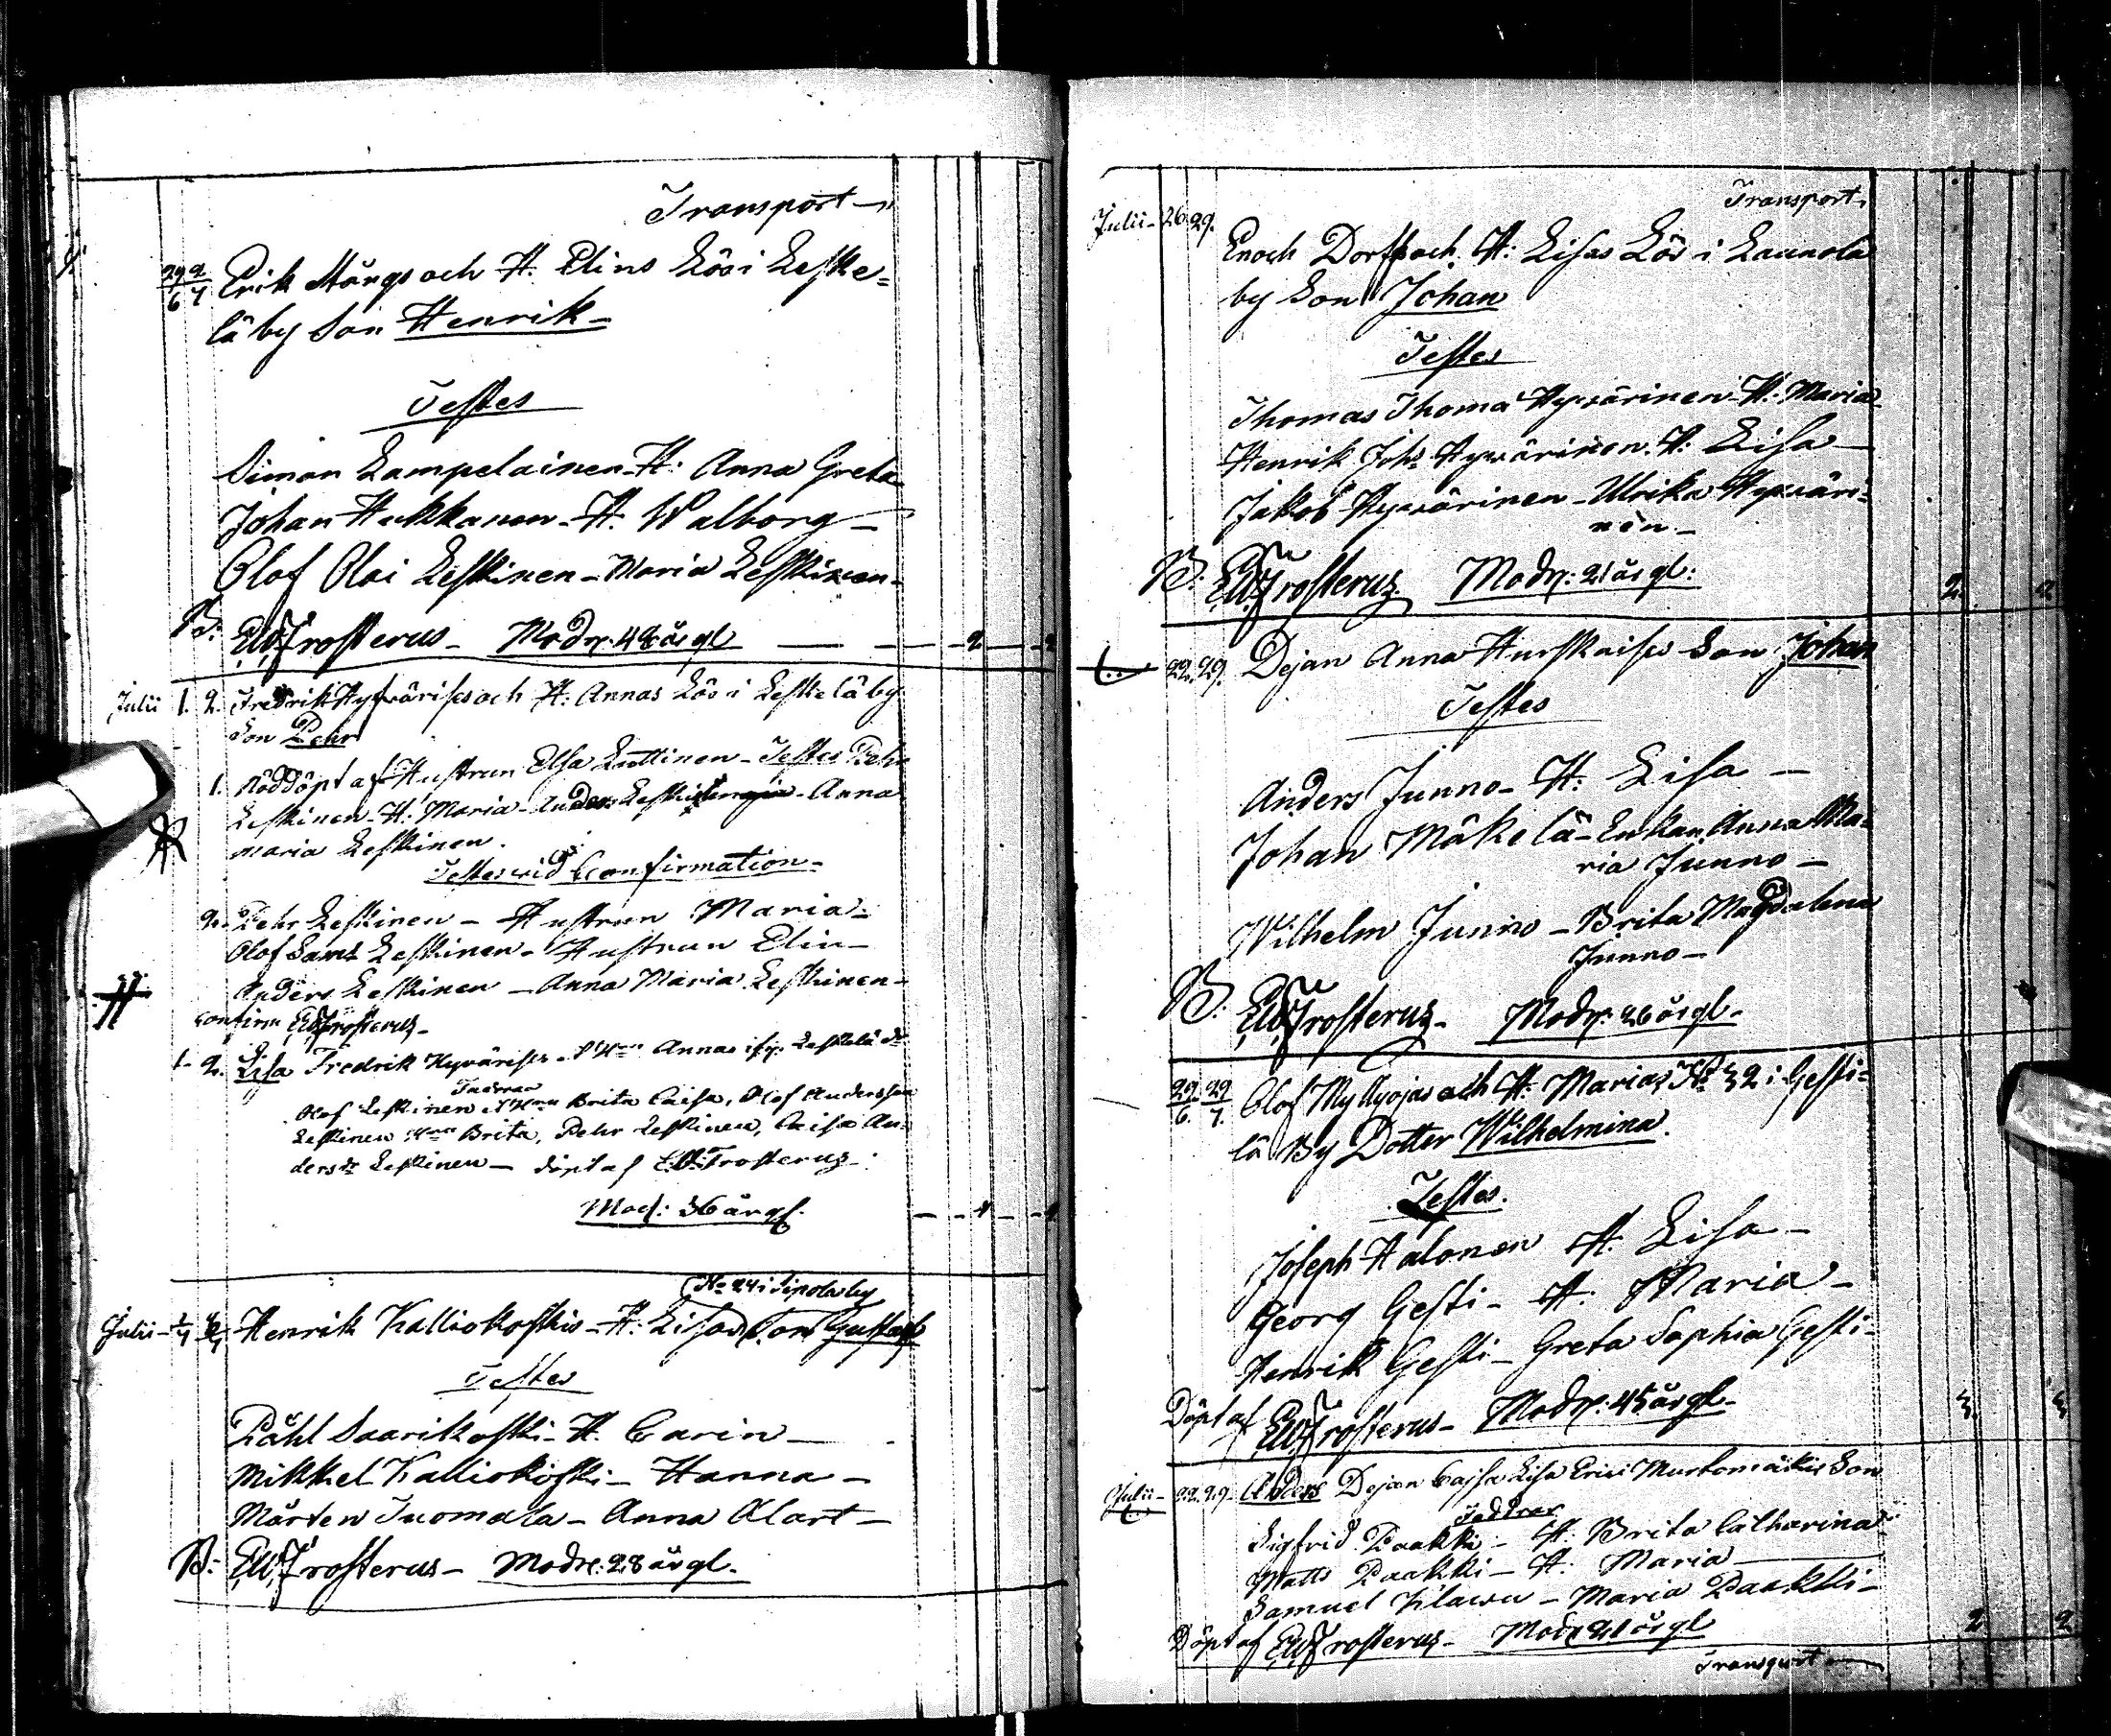 Transport
29/6 2/7 Erik Mångs och H. Elins Lös i Leske=
lä by Son Henrik
Testes
Simon Lampelainen - H: Anna Greta
Johan Hukkanen - H. Walborg -
Olof Olai Leskinen - Maria Leskinen -
B: EWFrosterus - Modr. 42 år gl - 2 - 2
Julii 1. 2. Fredrik Hyvärises och H: Annas Lös i Leskelä by
Son Pehr
1. Nöddöpt af Hustrun Elsa Luttinen - Testes Pehr
Leskinen - H. Maria - Anders Leskinen - Anna
Maria Leskinen.
Testes wid Confirmation -
2. Pehr Leskinen - Hustrun Maria -
Olof Saml Leskinen - Hustrun Elin -
Anders Leskinen - Anna Maria Leskinen -
Confirm EWFrosterus -
1. 2. Lisa Fredrik Hyvärises Annas Leskelä dr
Faddrar
Olof Leskinen Brita Caisa, Olof Andersson
Leskinen Brita, Pehr Leskinen, Caisa An=
dersdr Leskinen - döpt af EWFrosterus -
Mod: 36 år gl.
No 24 i Sipola by
Julii Henrik Kalliokoskis - H: Lisas Son Gustaf
Testes
Påhl Saarikoski - H. Carin -
Mikkel Kalliokoski - Hanna -
Mårten Tuomala - Anna Alart -
B: EWFrosterus - Modr: 28 år gl.
Transport
Julii - 26. 29.
Enoch Dorff och H: Lisas Lös i Laurola
by Son Johan
Testes
Thomas Thoma Hyvärinen - H: Maria
Henrik Johs Hyvärinen. H: Lisa -
Jakob Hyvärinen - Ulrika Hyväri=
nen -
B: EWFrosterus. Modr: 21 år gl: 2. 2
22. 29. Dejan Anna Hurskaises Son Johan
Testes
Anders Junno - H: Lisa -
Johan Mäkelä - Enkan Anna Ma=
ria Junno -
Wilhelm Junno - Brita Magdalena
Junno -
B: EWFrosterus - Modr: 26 år gl.
29/6. 29/7. Olof Myllyojas och H: Marias No 32 i Gesti=
lä By Dotter Wilhelmina.
Testes.
Joseph Halonen H. Lisa -
Georg Gesti - H. Maria -
Henrik Gesti - Greta Sophia Gesti -
Döpt af EWFrosterus - Modr. 45 år gl. 3. 3
Julii - 22. 29. Anders Dejan Cajsa Lisa Erici Murtomäkis Son
Faddrar
Sigfrid Paakki - H: Brita Catharina
Matts Paakki - H. Maria
Samuel - Maria Paakki -
Döpt af EWFrosterus - Modr 21 år gl 2 2
Transport